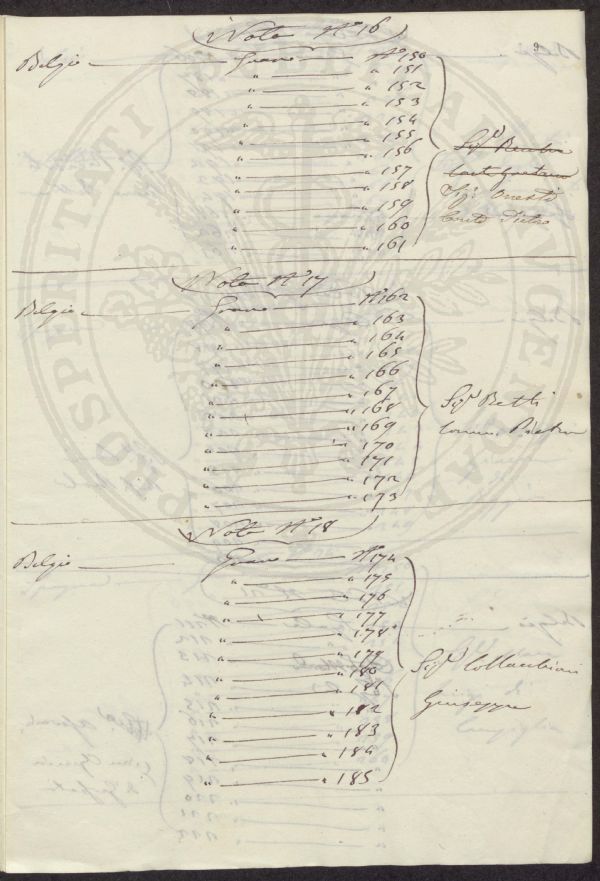 9
Note N° 16
Belgio — Grano — N° 150
" — " 151
" — " 152
" — " 153
" — " 154
" — " 155
" — " 156
" — " 157
" — " 158
" — " 159
" — " 160
" — " 161
Sig.r
Gaetano
Sig. Onesti
Conte Pietro
Note N° 17
Belgio — Grano — N° 162
" — " 163
" — " 164
" — " 165
" — " 166
" — " 167
" — " 168
" — " 169
" — " 170
" — " 171
" — " 172
" — " 173
Sig.r Betti
Comm. Pietro
Note N° 18
Belgio — Grano — N° 174
" — " 175
" — " 176
" — " 177
" — " 178
" — " 179
" — " 180
" — " 181
" — " 182
" — " 183
" — " 184
" — " 185
Sig.r Collacchioni
Giuseppe
PROSPERITATI PUBLICAE AUGENDAE